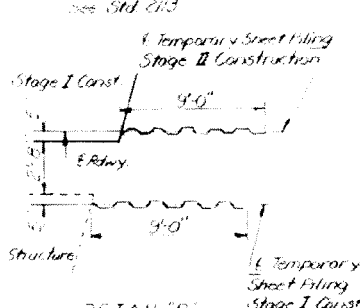 See Std. 2113
℄ Temporary Sheet Piling
Stage II Construction
Stage I Const.
9'-0"
℄ Rdwy.
9'-0"
Structure
℄ Temporary
Sheet Piling
Stage I Const